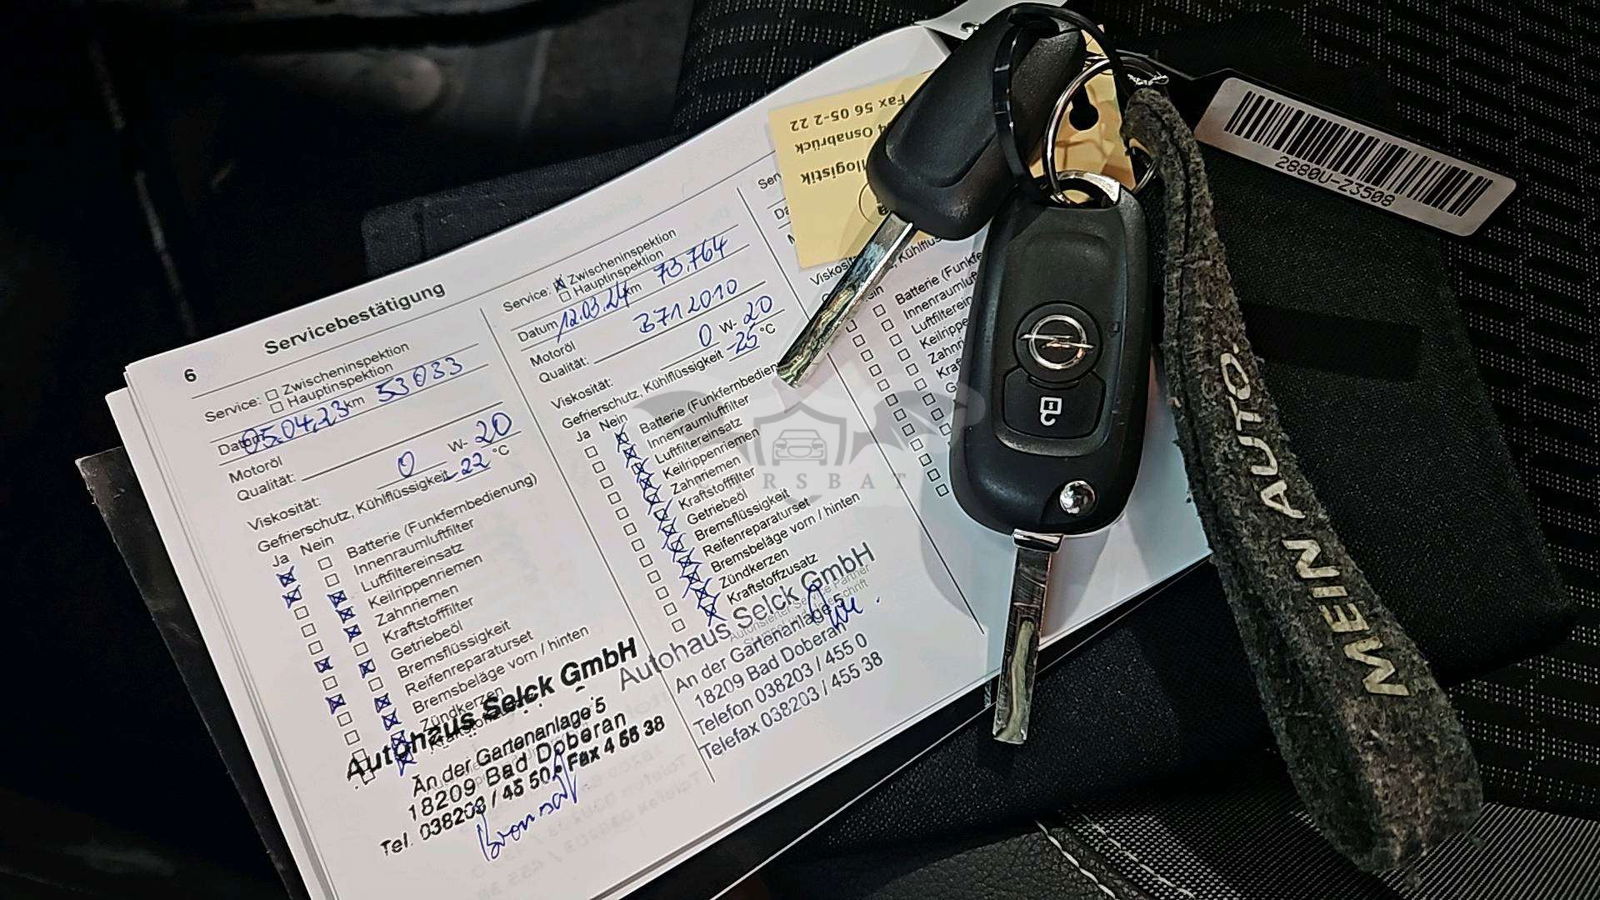 6
Servicebestätigung
Service: Zwischeninspektion
Hauptinspektion
Datum 05.04.23 km 53033
Motoröl
Qualität:
Viskosität: 0 W- 20
Gefrierschutz, Kühlflüssigkeit -22 °C
Ja Nein
Batterie (Funkfernbedienung)
Innenraumluftfilter
Luftfiltereinsatz
Keilrippenriemen
Zahnriemen
Kraftstofffilter
Getriebeöl
Bremsflüssigkeit
Reifenreparaturset
Bremsbeläge vorn / hinten
Zündkerzen
Autohaus Selck GmbH
An der Gartenanlage 5
18209 Bad Doberan
Tel. 038203 / 45 50 • Fax 4 55 38
Service: Zwischeninspektion
Hauptinspektion
Datum 12.03.24 km 73.764
Motoröl
Qualität: B712010
Viskosität: 0 W- 20
Gefrierschutz, Kühlflüssigkeit -25 °C
Ja Nein
Batterie (Funkfernbedien
Innenraumluftfilter
Luftfiltereinsatz
Keilrippenriemen
Zahnriemen
Kraftstofffilter
Getriebeöl
Bremsflüssigkeit
Reifenreparaturset
Bremsbeläge vorn / hinten
Zündkerzen
Kraftstoffzusatz
Autohaus Selck GmbH
Autorisierter Service Partner
An der Gartenanlage 5
18209 Bad Doberan
Telefon 038203 / 455 0
Telefax 038203 / 455 38
Ser
Da
Viskosit
Kühlflüss
Batterie (Funkf
Innenraumluft
Luftfilterein
Keilrippen
Zahnr
Kraf
logistik
Osnabrück
Fax 56 05-2 22
2880U-Z3508
MEIN AUTO.
RSBAT